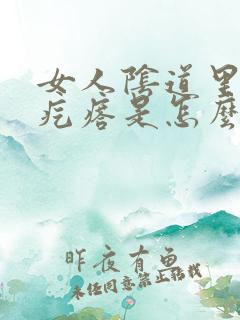 女人陰道里
疙瘩是怎麼
昨夜有魚
未经同意禁止转载